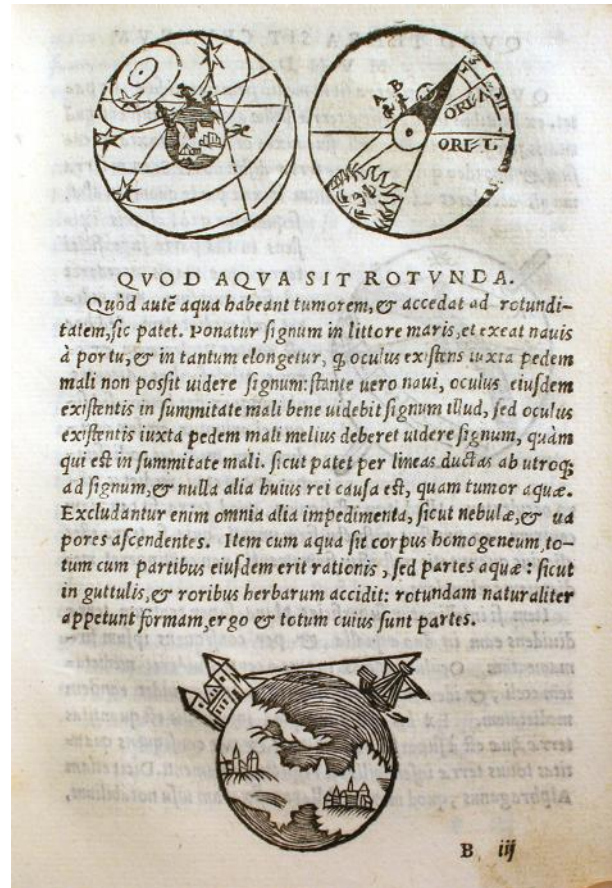 A B
ORI
ORI
QVOD AQVA SIT ROTVNDA.
Quòd autẽ aqua habeant tumorem, & accedat ad rotundi-
tatem, sic patet. Ponatur signum in littore maris, et exeat nauis
à portu, & in tantum elongetur, q̃ oculus existens iuxta pedem
mali non possit uidere signum: stante uero naui, oculus eiusdem
existentis in summitate mali bene uidebit signum illud, sed oculus
existentis iuxta pedem mali melius deberet uidere signum, quàm
qui est in summitate mali. sicut patet per lineas ductas ab utroq;
ad signum, & nulla alia huius rei causa est, quam tumor aquæ.
Excludantur enim omnia alia impedimenta, sicut nebulæ, & ua
pores ascendentes. Item cum aqua sit corpus homogeneum, to-
tum cum partibus eiusdem erit rationis, sed partes aquæ: sicut
in guttulis, & roribus herbarum accidit: rotundam naturaliter
appetunt formam, ergo & totum cuius sunt partes.
B iij